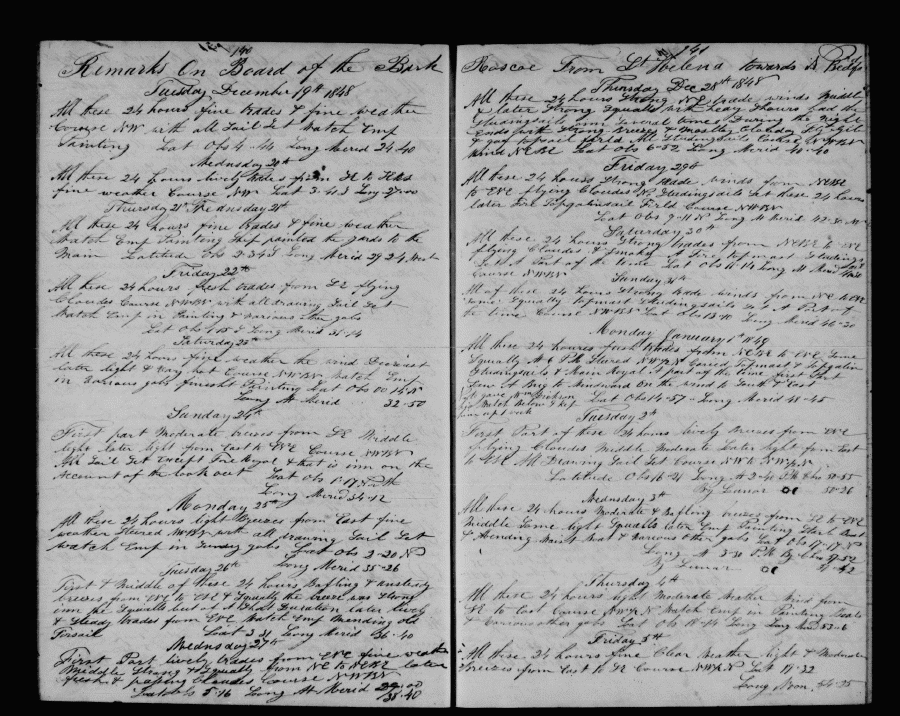 140
Remarks On Board of the Bark
Tuesday December 19th 1848
All these 24 hours fine trades & fine weather
Course NW with all Sail Set Watch Emp
Painting Lat Obs 4-44 Long Merid 24-40
Wednesday 20th
All these 24 hours lively trades from SE to
fine weather Course NW Lat 3-43 Long 27-00
Thursday 21st
All these 24 hours fine trades & fine weather
Watch Emp Painting Ship painted the yards to the
Main Latitude Obs 2-34 S Long Merid 29 24 West
Friday 22th
All these 24 hours fresh trades from SE flying
Cloudes Course NWBN with all drawing Sail Set
Watch Emp in Painting & Various other gobs
Lat Obs S Long Merid 31-14
Saturday 23th
All these 24 hours fine weather the wind
later light & Vary hot Course NWBN Watch Emp
in Various gobs finesht Painting Lat Obs 00 14 N
Long At Merid 32-50
Sunday 24th
First part Moderate breezes from SE Middle
light later light from East to ENE Course NWBN
All Sail Set Except fore Royal & that is inn on the
Account of the look out Lat Obs 1-17 North
Long Merid 34-12
Monday 25th
All these 24 hours light breezes from East fine
weather Steered NWBN with all drawing Sail Set
Watch Emp in gobs Lat Obs 2-20 N
Long Merid 35-26
Tuesday 26th
First & Middle of these 24 hours Bafling & unsteady
breezes from ENE to ENE & Squally the breeze was Strong
inn the Squalls but of A Short Duration later lively
& Steady trades from ENE Watch Emp mending old
Foresail Lat 3 31 Long Merid 36-40
Wednesday 27th
First Part lively trades from ENE fine weather
Middle Strong & Squally from NE to NEBE later
fresh & Cloudes Course NWBN
Lat Obs 5-16 Long At Merid 38-40
141
Roscoe From St Helena towards
Thursday Dec 28th 1848
All these 24 hours Strong NE trade winds Middle
& later Strong Squalls & Heavy Showers had the
Studingsails inn Several times During the Night
Ends with Strong breezes & Mostly Cloudy Sky
& gaf topsail furled All Studingsails Course NWBN
wind NEBE Lat Obs 6-52 Long Merid 40-40
Friday 29th
All these 24 hours Strong trade winds from NEBE
to ENE flying Cloudes No Studingsails Set these 24 hours
later fore Topgalantsail Furld Course NWBN
Lat Obs 9-11 N Long At Merid 42-30
Saturday 30th
All these 24 hours Strong trades from NEBE to ENE
flying Cloudes & Smoky A Fore topmast Studingsail
Set A Part of the time Lat Obs 11-14 Long At Merid
Course NWBN
Sunday 31th
All of these 24 hours Strong trade winds from NE to ENE
Some Squally topmast Studingsails Set A Part of
the time Course NWBN Lat Obs 13-10 Long Merid 46-20
Monday January 1st 1849
All these 24 hours fresh trades from NEBE to ENE Some
Squally At 6 PM Stured NWBN Loused Topmast & topgallan
Studingsails & Main Royal A part of the time first Part
Saw A Brig to Windward On the wind to South & East
Lat Obs 14-57 Long Merid 48-45
Tuesday 2th
First Part of these 24 hours lively breezes from ENE
flying Cloudes Middle Moderate Later light from East
to ENE All Drawing Sail Set Course
Latitude Obs 16-21 Long At 3-40 PM 50-55
By Lunar 50-26
Wednesday 3th
All these 24 hours Moderate & Bafling breezes from SE to ENE
Middle Some light Squalls later Emp Painting Starb Boat
& Mending Waist Boat & Various other gobs Lat Obs 17-17 N
Long At 3-30 PM By
By Lunar
Thursday 4th
All these 24 hours light Moderate Weather Wind from
SE to East Course Watch Emp in Painting Boats
& Various other gobs Lat Obs 18-14 Long 53-6
Friday 5th
All these 24 hours fine Clear Weather light & Moderate
Breezes from East to SE Course Lat 19-32
Long Noon 54-25